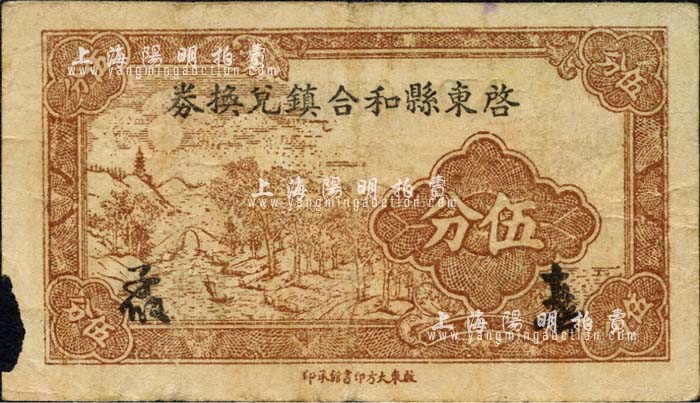 上海陽明拍賣
www.yangmingauction.com
券換兌鎮合和縣東啓
分伍
分伍
上海陽明拍賣
www.yangmingauction.com
分伍
分伍
上海陽明拍賣
www.yangmingauction.com
印承館書印方大東啟